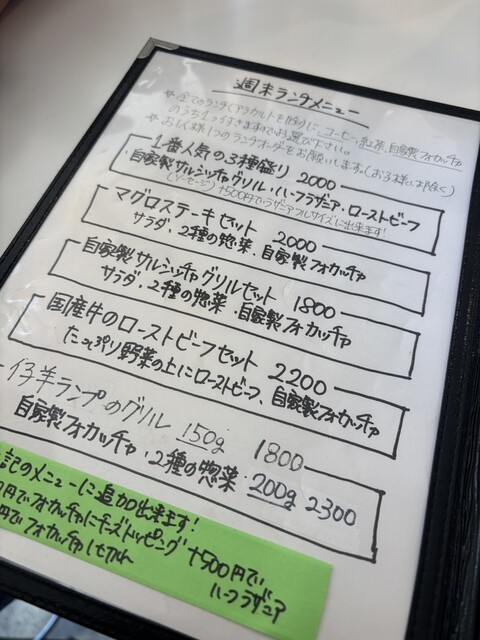 週末ランチメニュー
＊全てのランチ(アラカルトを除く)に、コーヒー、紅茶、自家製フォカッチャ
のうち1つ付きますのでお選び下さい。
＊お1人様1つのランチオーダーをお願いします。(お子様は除く)
1番人気の3種盛り 2000
・自家製サルシッチャグリル・ハーフラザニア・ローストビーフ
(ソーセージ) +500円でラザニアフルサイズに出来ます!
マグロステーキセット 2000
サラダ・2種の惣菜・自家製フォカッチャ
自家製サルシッチャグリルセット 1800
サラダ・2種の惣菜・自家製フォカッチャ
国産牛のローストビーフセット 2200
たっぷり野菜の上にローストビーフ、自家製フォカッチャ
仔羊ランプのグリル 150g 1800
自家製フォカッチャ・2種の惣菜 200g 2300
記のメニューに追加出来ます!
円でフォカッチャにチーズトッピング +500円で
円でフォカッチャ ハーフラザニア